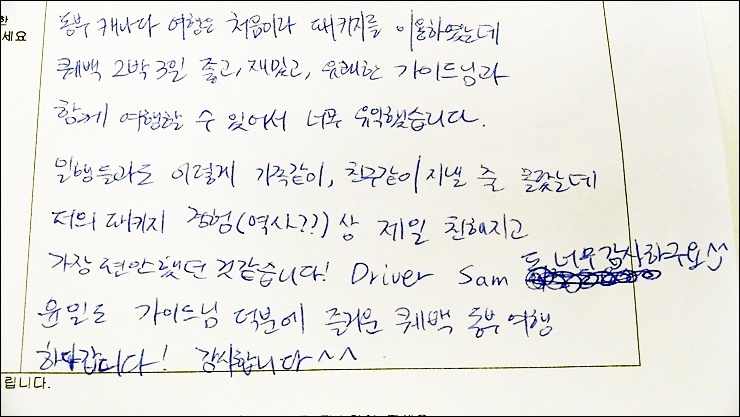 한
세요
동부 캐나다 여행은 처음이라 패키지를 이용하였는데
퀘백 2박3일 즐고, 재밌고, 유쾌한 가이드님과
함께 여행할 수 있어서 너무 유익했습니다.
일행들과도 이렇게 가족같이, 친구같이 지낼 줄 몰랐는데
저의 패키지 경험(역사??)상 제일 친해지고
가장 편안했던 것같습니다! Driver Sam 도 너무감사하구요^^
윤일도 가이드님 덕분에 즐거운 퀘백 동부여행
하다갑니다! 감사합니다^^
립니다.